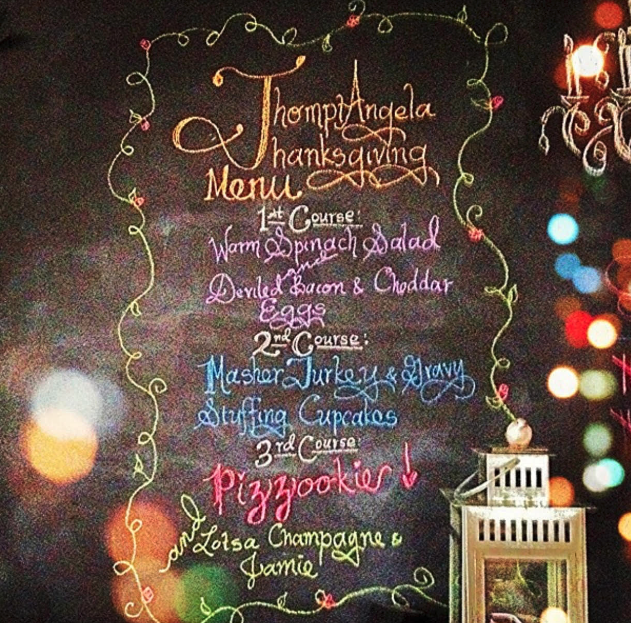 ThompiAngela
Thanksgiving
Menu
1st Course:
Warm Spinach Salad
and
Deviled Bacon & Cheddar
Eggs
2nd Course:
Masher Turkey & Gravy
Stuffing Cupcakes
3rd Course
Pizzookie!
and Lotsa Champagne &
Jamie